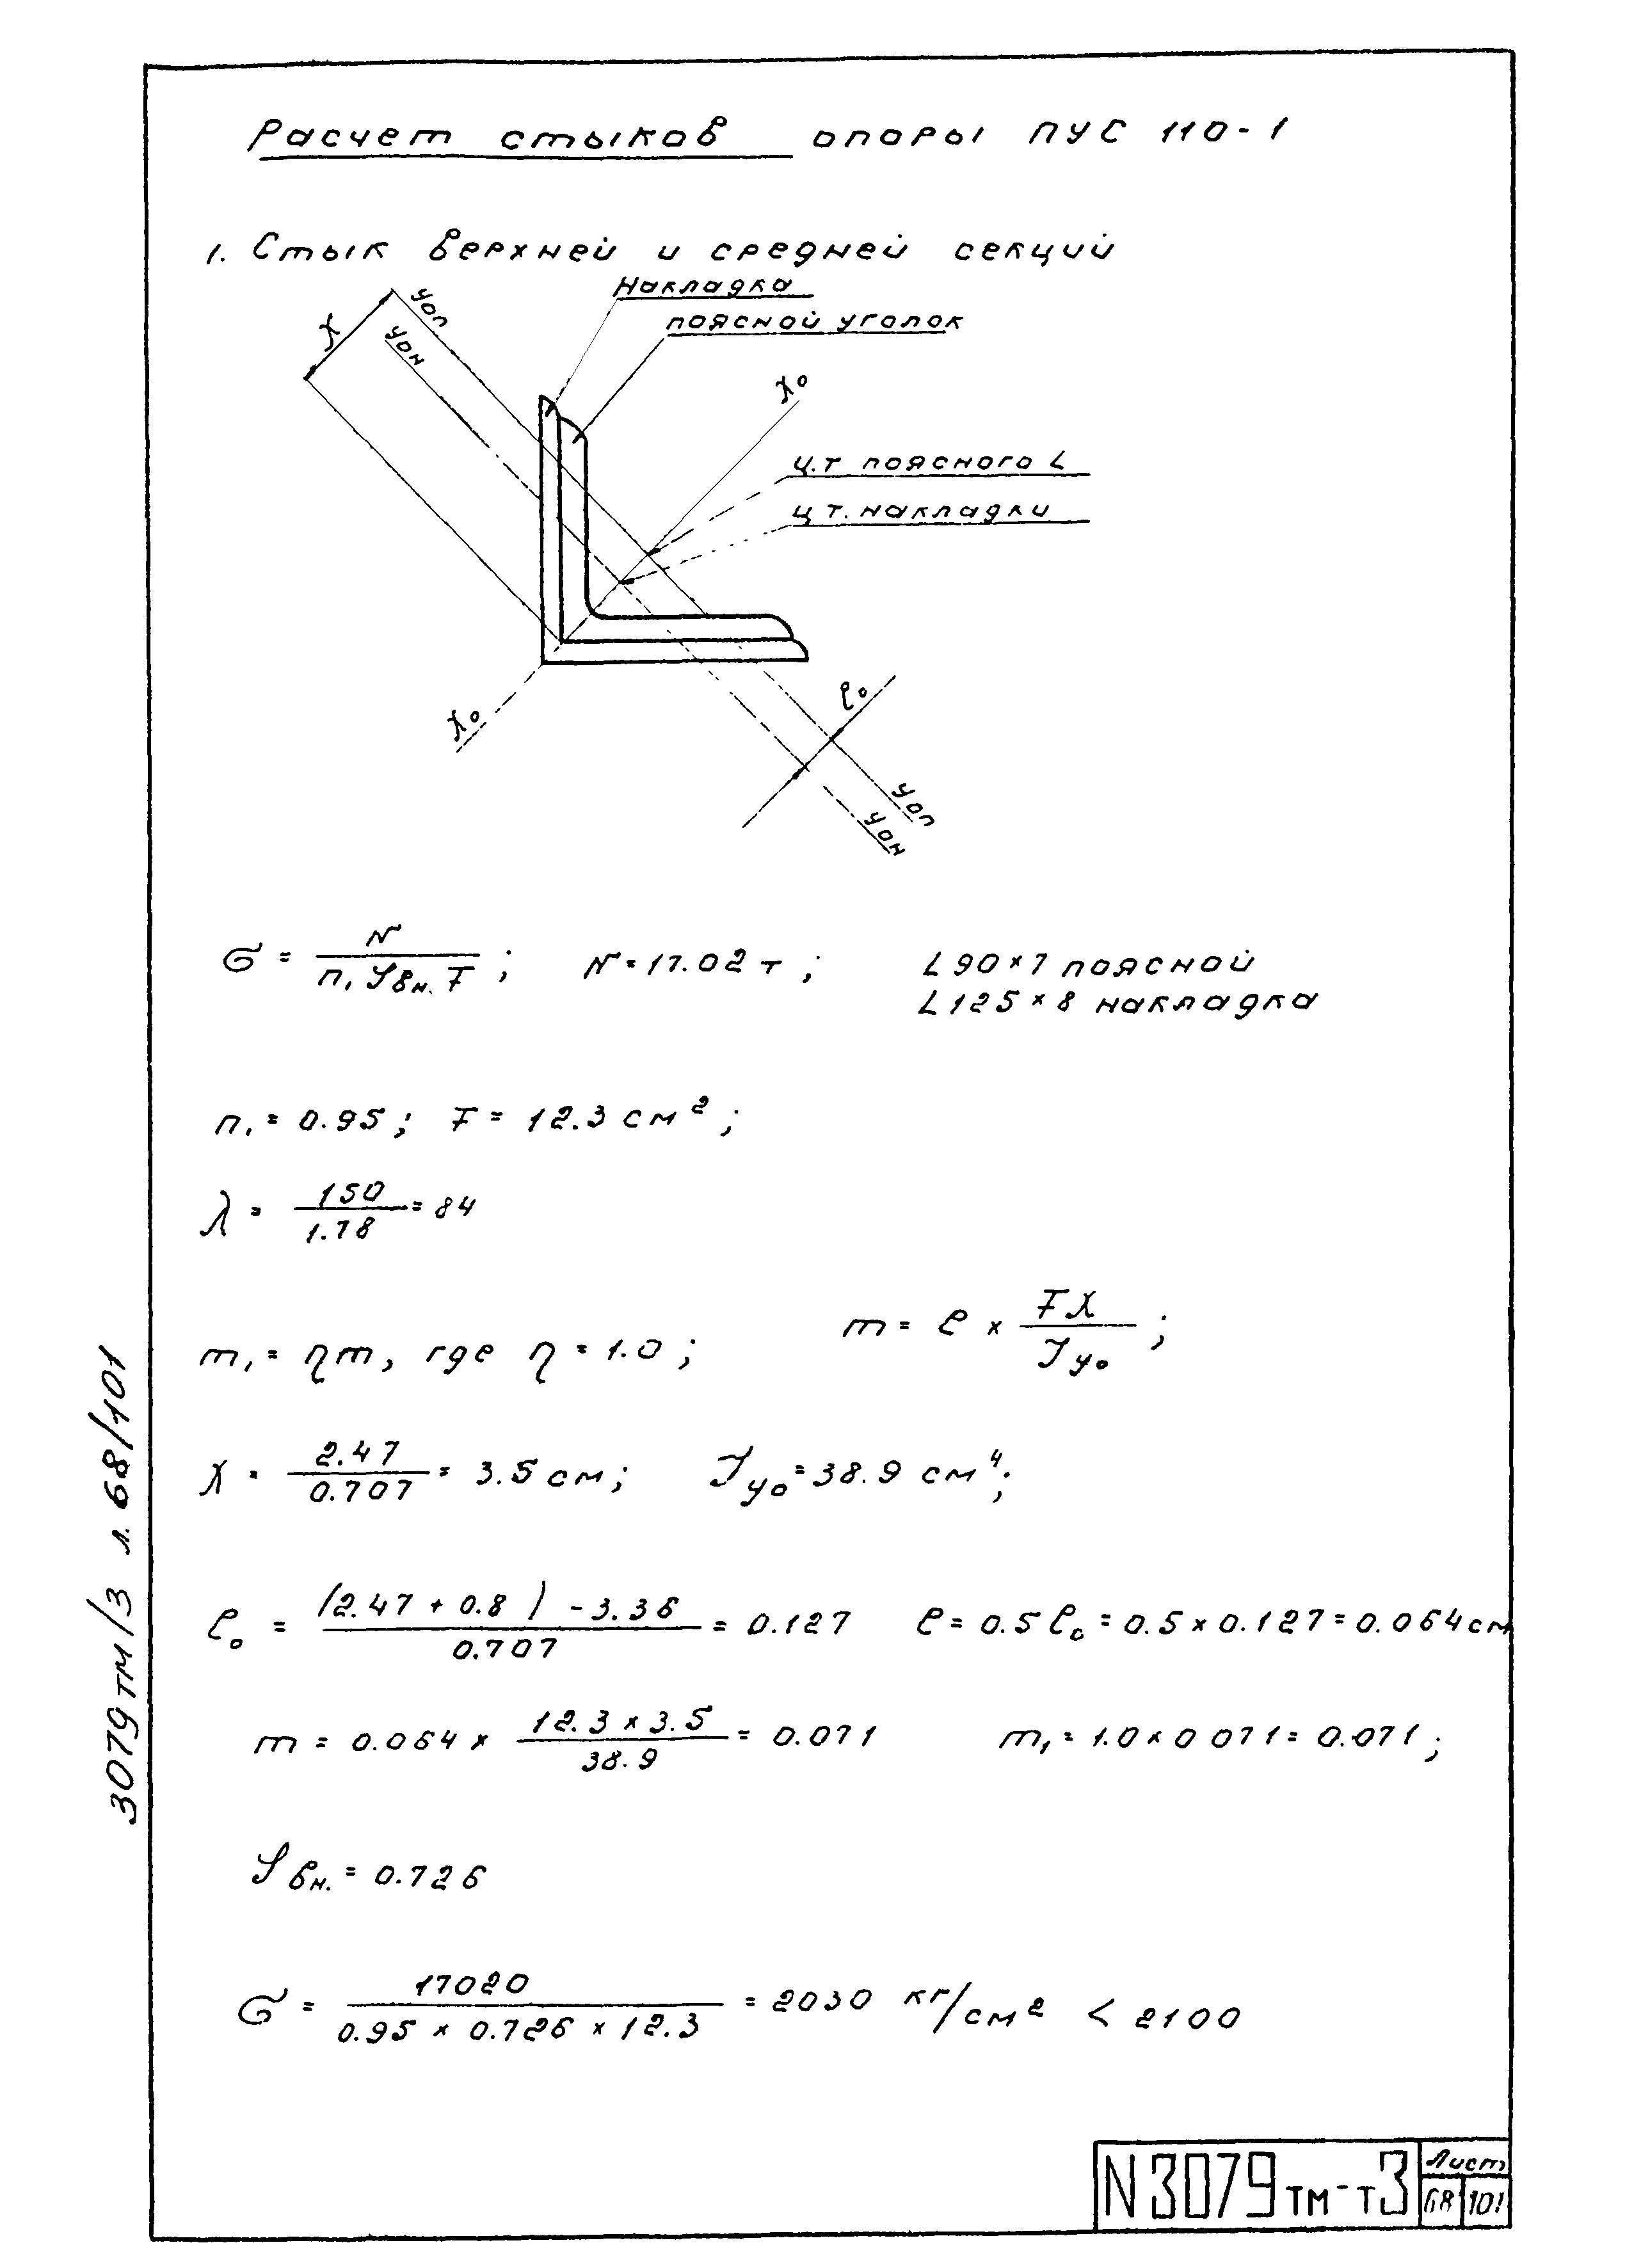 Расчет стыков опоры ПУС 110-1
1. Стык верхней и средней секций
Накладка
поясной уголок
X
Уоп
Уон
Xо
ц.т поясного L
ц т. накладки
Xо
eо
Уоп
Уон
σ = N / n₁ φвн. F ; N = 17.02 т ; L 90 × 7 поясной
L 125 × 8 накладка
n₁ = 0.95 ; F = 12.3 см² ;
λ = 150 / 1.78 = 84
m₁ = ηm, где η = 1.0 ; m = e × FX / Jyo ;
X = 2.47 / 0.707 = 3.5 см ; Jyo = 38.9 см⁴ ;
e₀ = (2.47 + 0.8) - 3.36 / 0.707 = 0.127 e = 0.5 e₀ = 0.5 × 0.127 = 0.064 см
m = 0.064 × 12.3 × 3.5 / 38.9 = 0.071 m₁ = 1.0 × 0 071 = 0.071 ;
φвн. = 0.726
σ = 17020 / 0.95 × 0.726 × 12.3 = 2030 кг/см² < 2100
3079тм/3 л. 68/101
N3079тм-т3
Лист
68 101